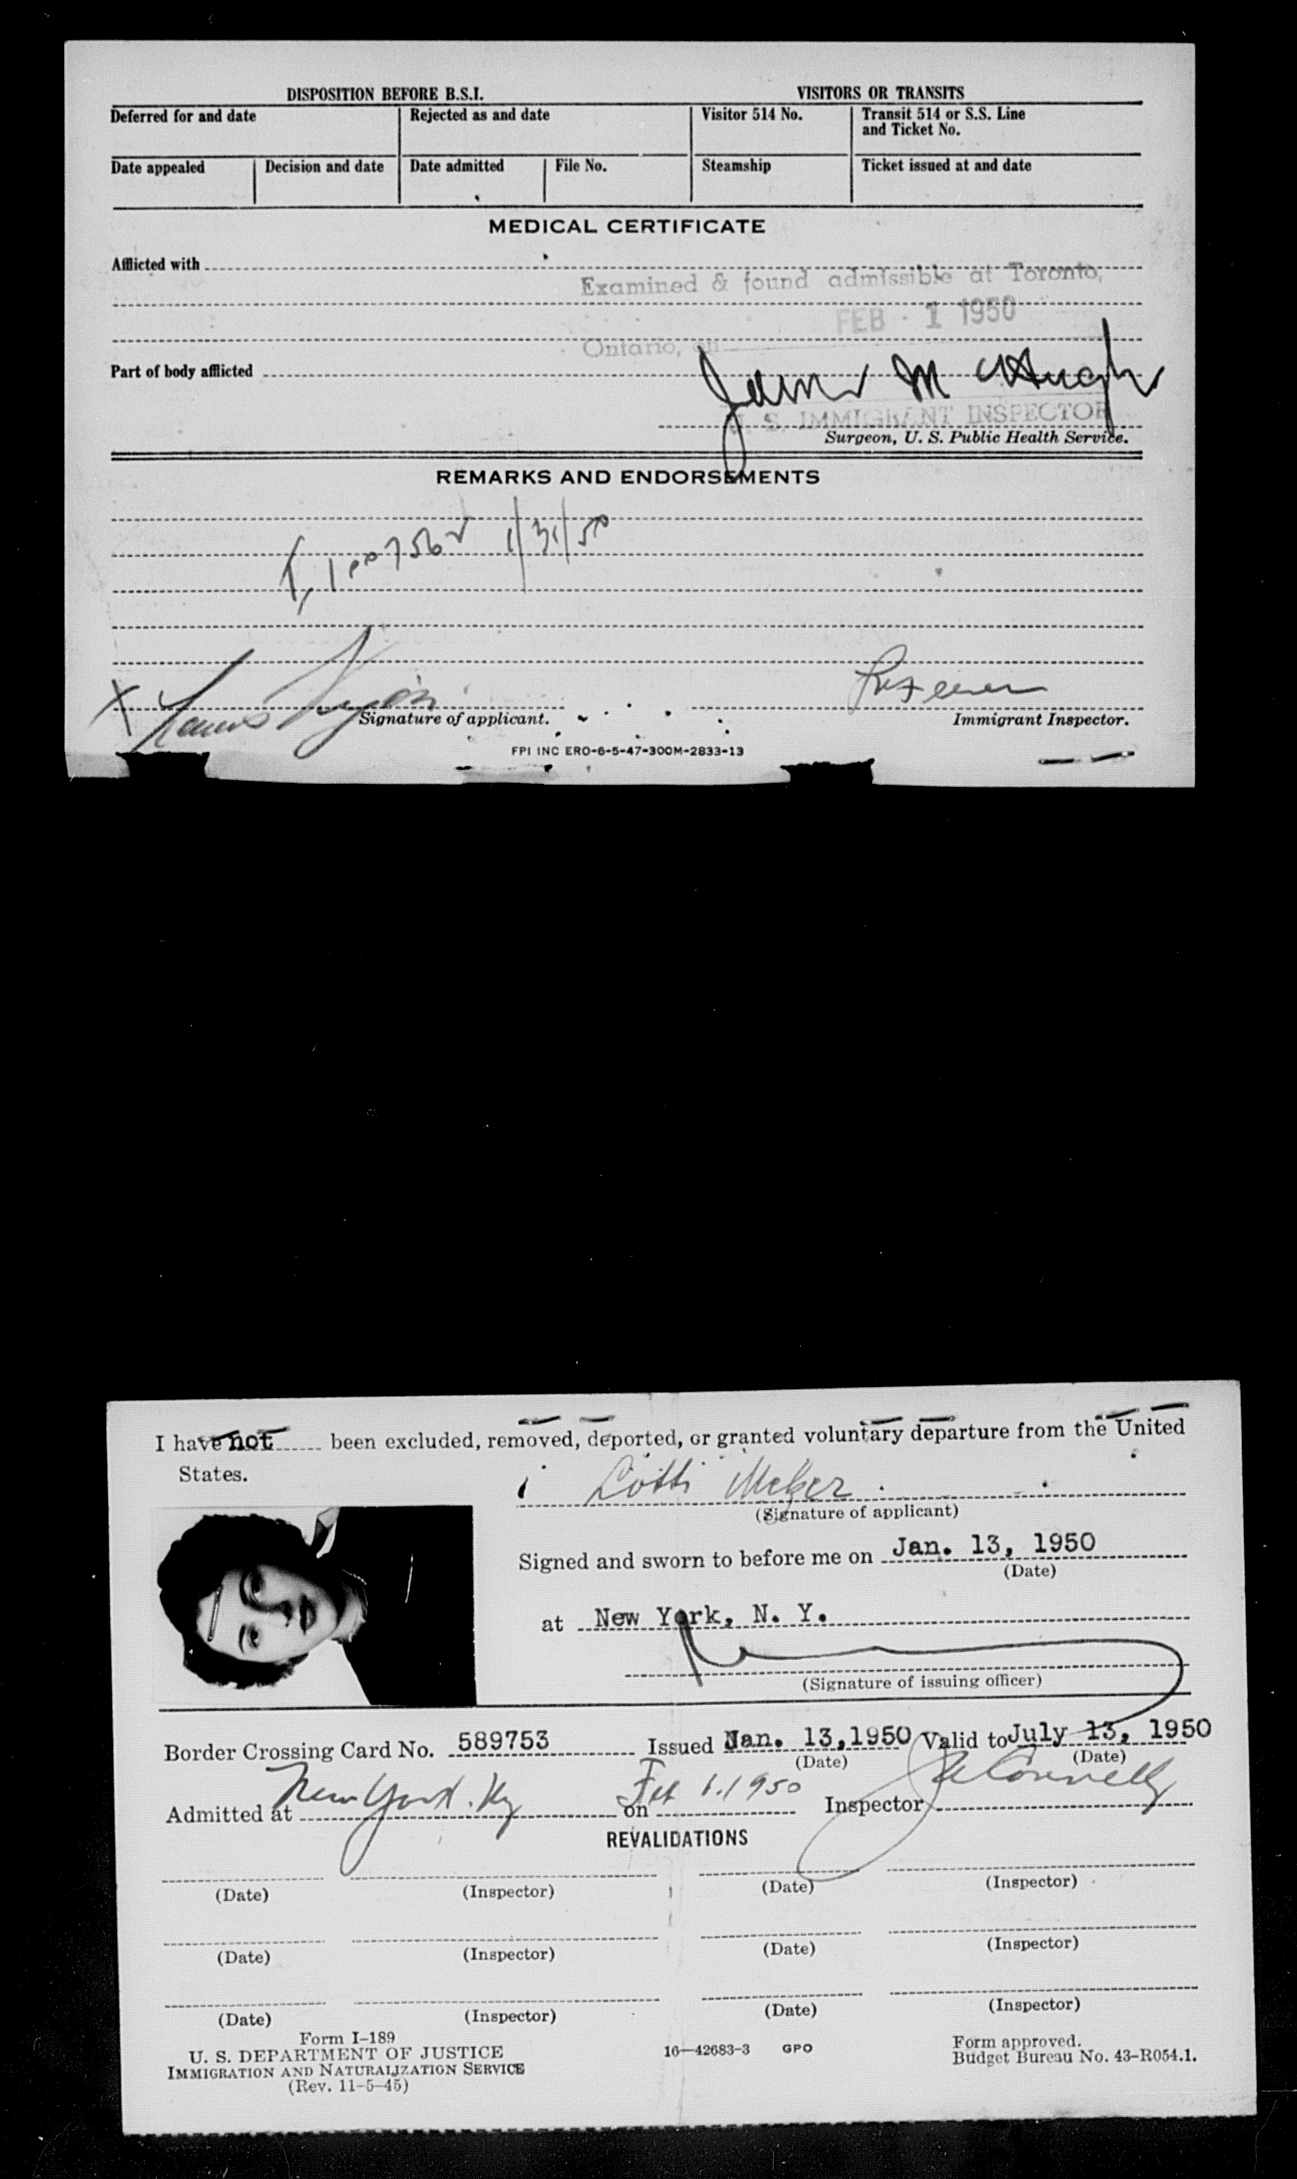 DISPOSITION BEFORE B.S.I. VISITORS OR TRANSITS
Deferred for and date Rejected as and date Visitor 514 No. Transit 514 or S.S. Line and Ticket No.
Date appealed Decision and date Date admitted File No. Steamship Ticket issued at and date
MEDICAL CERTIFICATE
Afflicted with
Examined & found admissible at Toronto,
FEB 1 1950
Ontario, on
Part of body afflicted
James McHugh
U. S. IMMIGRANT INSPECTOR
Surgeon, U. S. Public Health Service.
REMARKS AND ENDORSEMENTS
1/31/50
X
Signature of applicant. Immigrant Inspector.
FPI INC ERO-6-5-47-300M-2833-13
I have not been excluded, removed, deported, or granted voluntary departure from the United
States.
Lotti
(Signature of applicant)
Signed and sworn to before me on Jan. 13, 1950
(Date)
at New York, N. Y.
(Signature of issuing officer)
Border Crossing Card No. 589753 Issued Jan. 13,1950 Valid to July 13, 1950
(Date) (Date)
Admitted at New York. Ny on Feb 6. 1950 Inspector Connelly
REVALIDATIONS
(Date) (Inspector) (Date) (Inspector)
(Date) (Inspector) (Date) (Inspector)
(Date) (Inspector) (Date) (Inspector)
Form I-189
U. S. DEPARTMENT OF JUSTICE
IMMIGRATION AND NATURALIZATION SERVICE
(Rev. 11-5-45)
16—42683-3 GPO
Form approved.
Budget Bureau No. 43-R054.1.